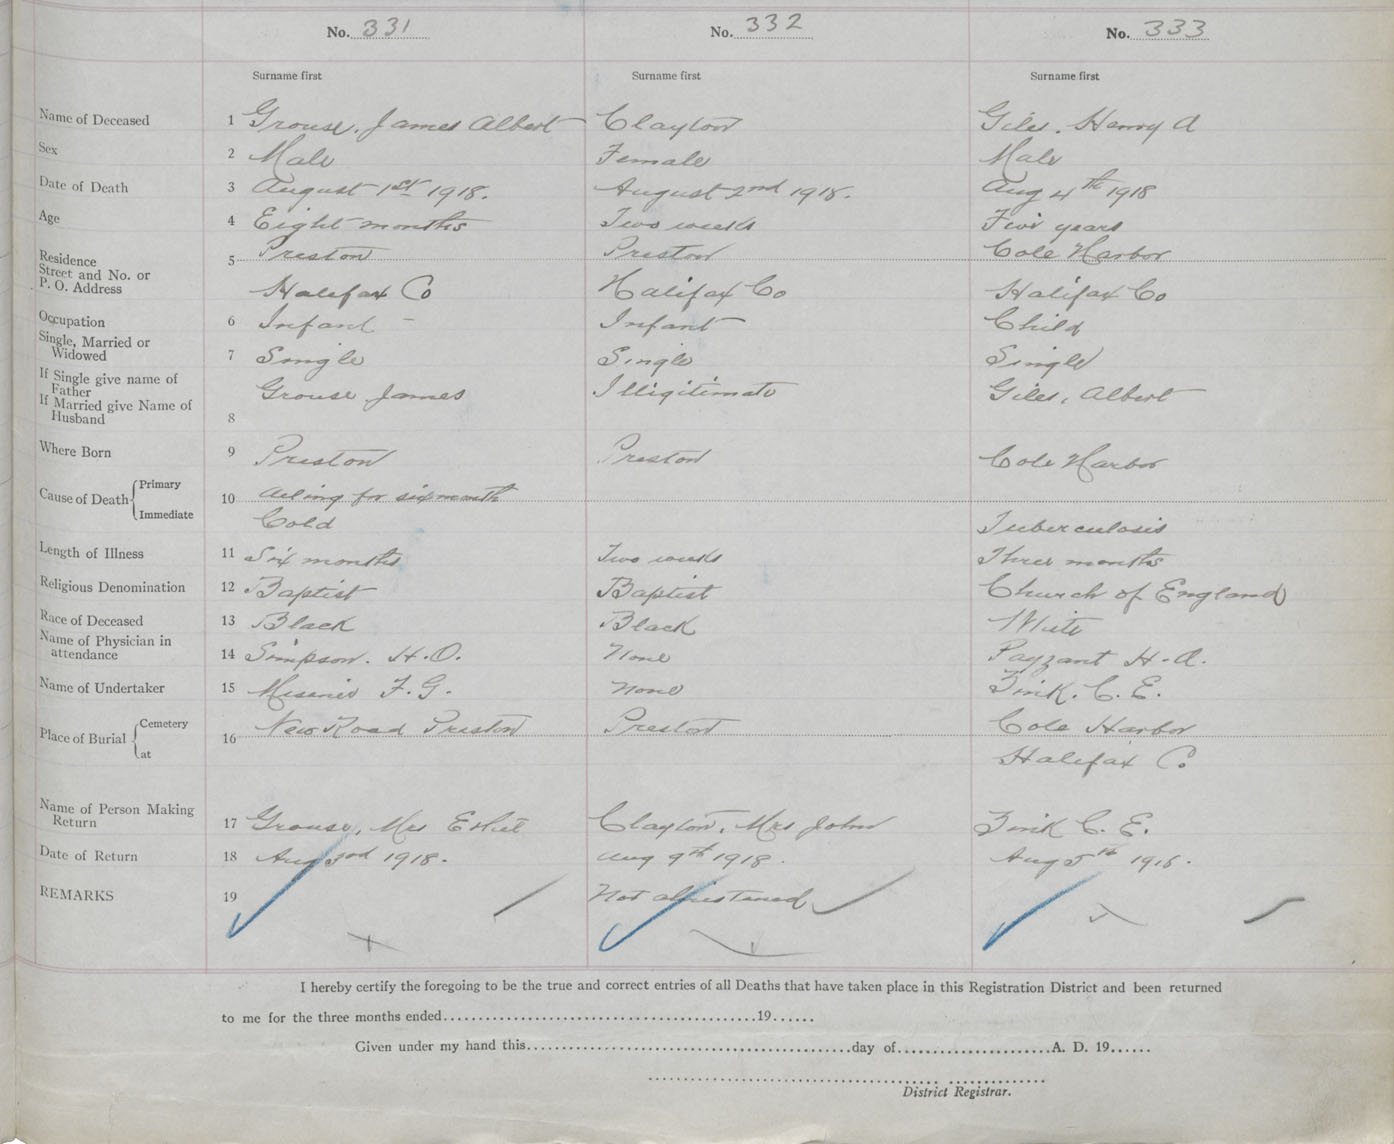 No. 331 No. 332 No. 333
Surname first Surname first Surname first
Name of Deceased 1 Grouse, James Albert Clayton Giles, Henry A
Sex 2 Male Female Male
Date of Death 3 August 1st 1918. August 2nd 1918. Aug 4th 1918
Age 4 Eight months Two weeks Five years
Residence 5 Preston Preston Cole Harbor
Street and No. or
P. O. Address Halifax Co Halifax Co Halifax Co
Occupation 6 Infant - Infant Child
Single, Married or
Widowed 7 Single Single Single
If Single give name of
Father Grouse James Illigitimate Giles, Albert
If Married give Name of
Husband 8
Where Born 9 Preston Preston Cole Harbor
Cause of Death Primary 10 Ailing for six month
Immediate Cold Tuberculosis
Length of Illness 11 Six months Two weeks Three months
Religious Denomination 12 Baptist Baptist Church of England
Race of Deceased 13 Black Black White
Name of Physician in
attendance 14 Simpson. H.O. None Payzant H.A.
Name of Undertaker 15 F.G. None Zink. C. E.
Place of Burial Cemetery 16 New Road Preston Preston Cole Harbor
at Halifax Co
Name of Person Making
Return 17 Grouse, Mrs Clayton, Mrs John Zink C. E.
Date of Return 18 Aug 3rd 1918. Aug 9th 1918. Aug 5th 1918.
REMARKS 19 Not
I hereby certify the foregoing to be the true and correct entries of all Deaths that have taken place in this Registration District and been returned
to me for the three months ended..........19......
Given under my hand this..........day of..........A. D. 19......
District Registrar.